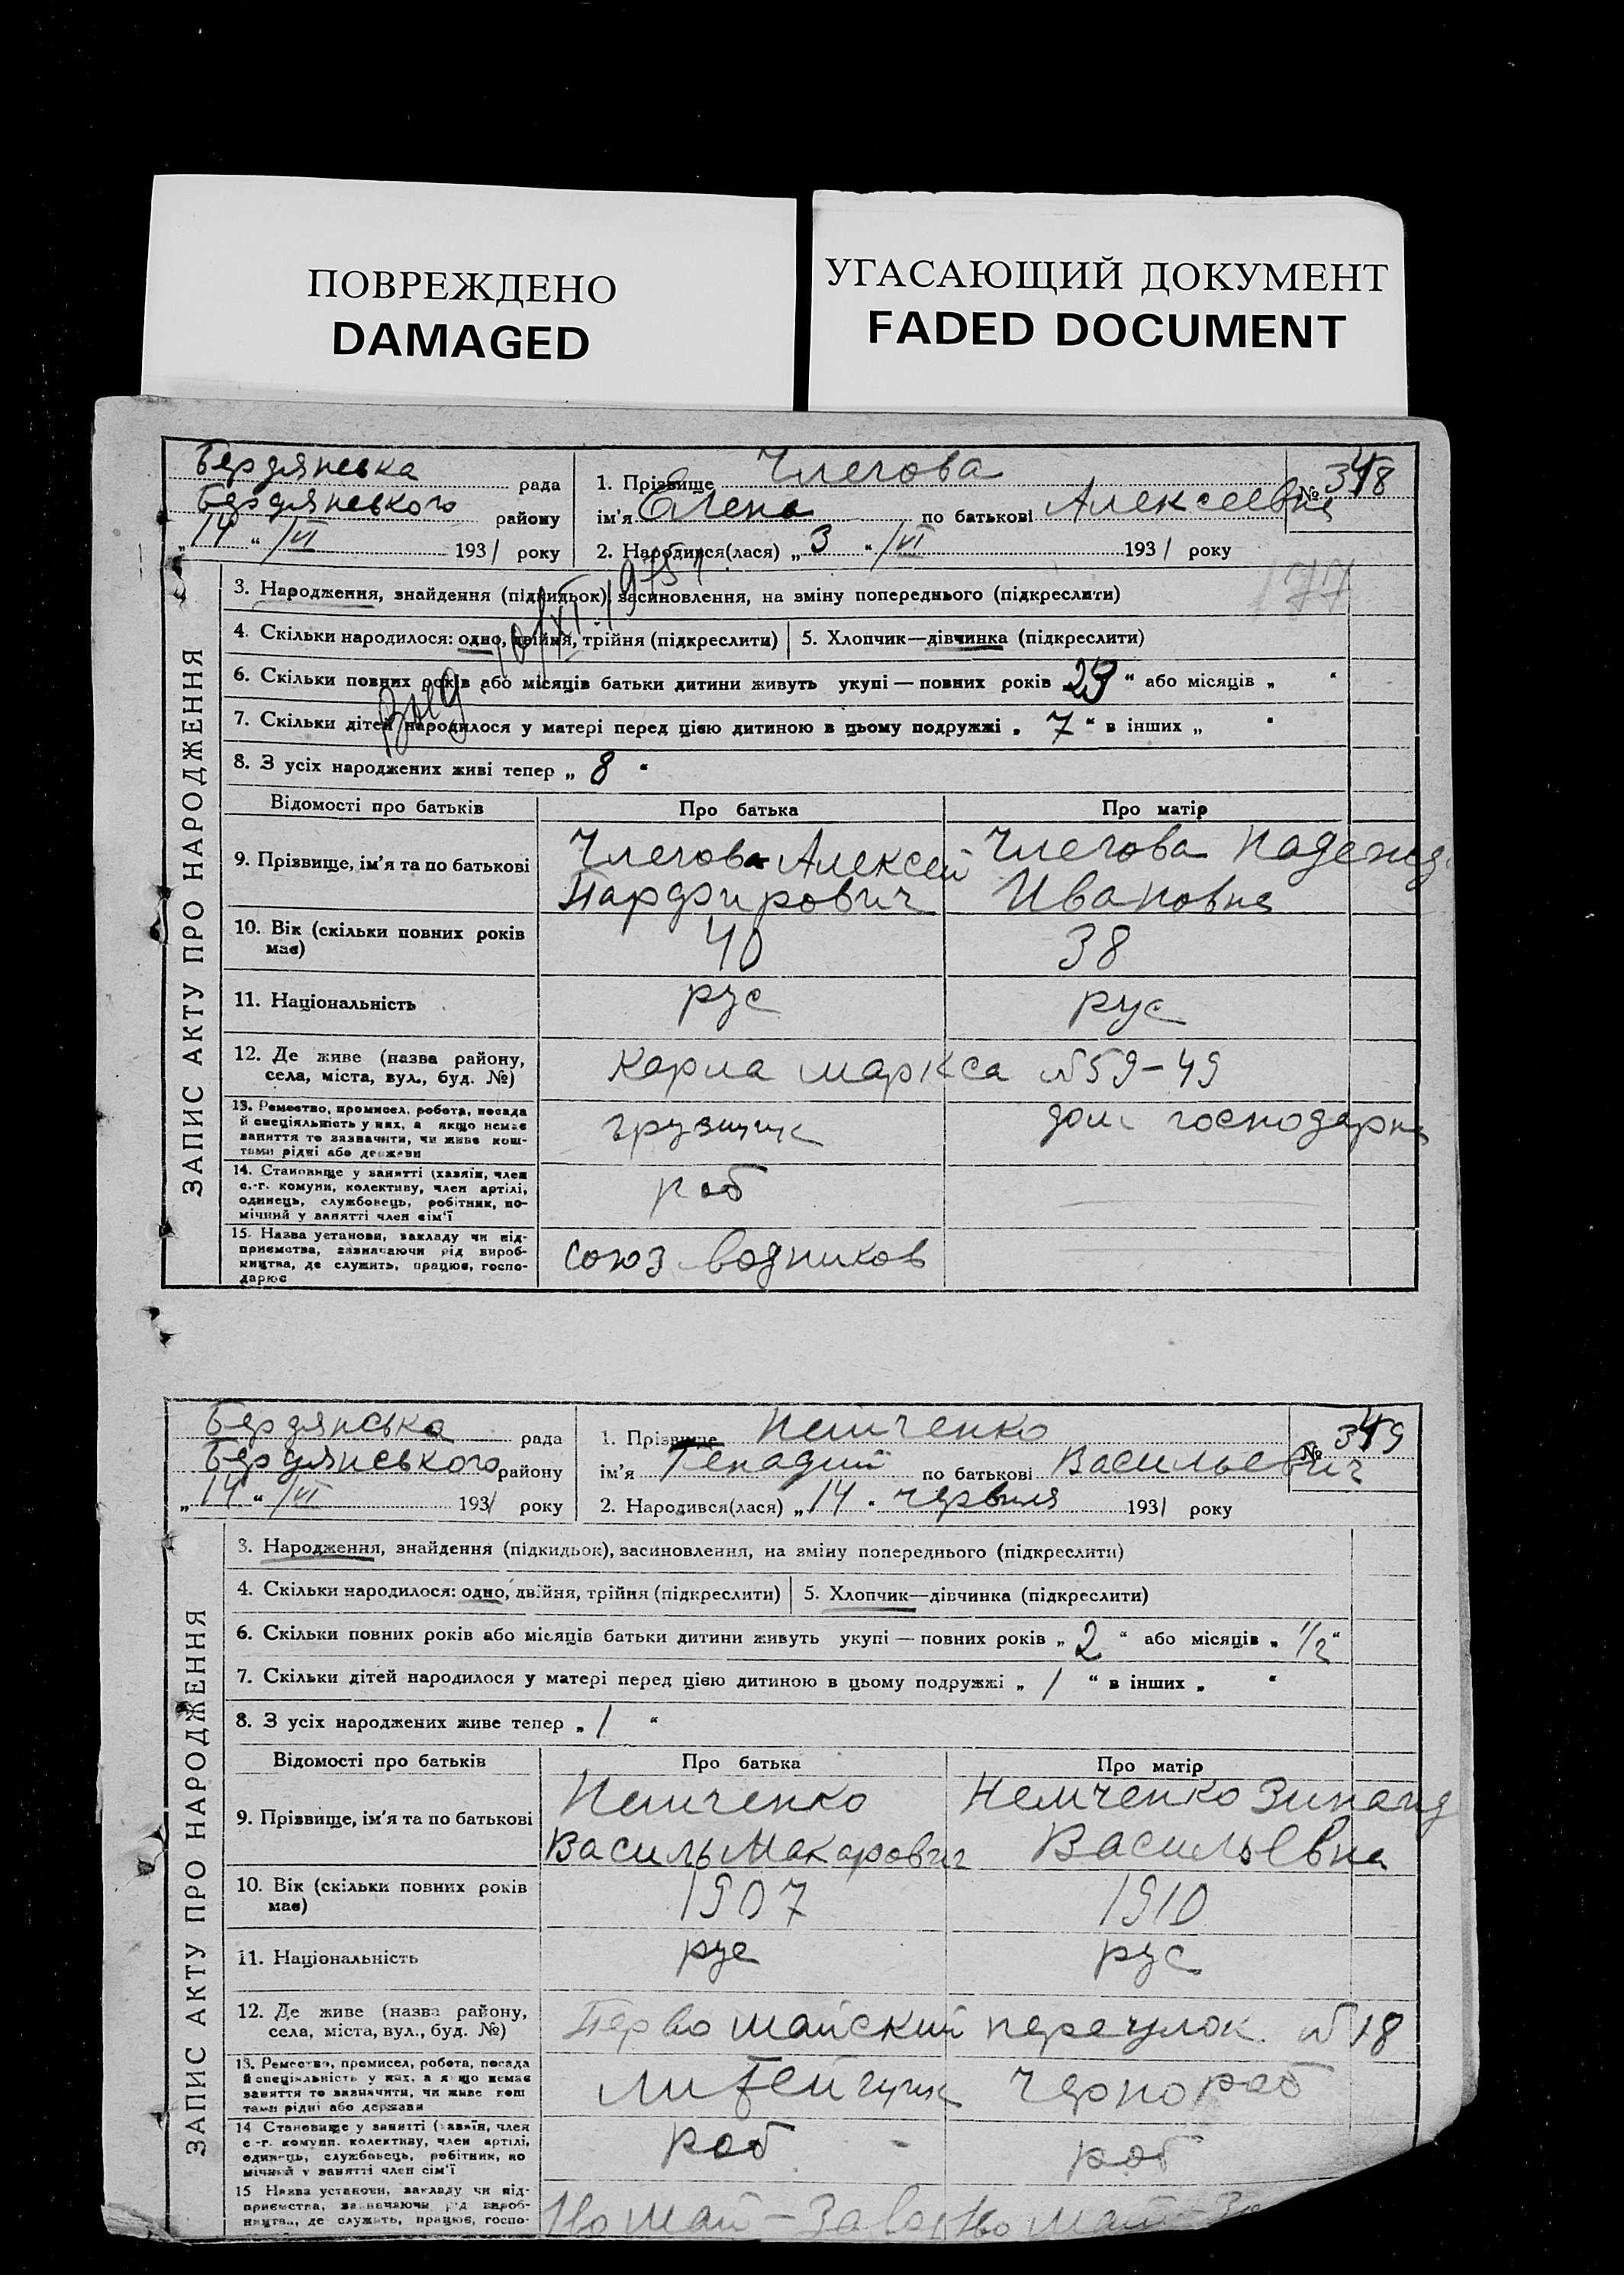 ПОВРЕЖДЕНО
DAMAGED
УГАСАЮЩИЙ ДОКУМЕНТ
FADED DOCUMENT
Бердянська рада
Бердянського району
„14“ /VI 1931 року
1. Прізвище Члегова
ім'я Елена по батькові Алексеевна
№ 348
2. Народився(лася) „3“ /VI 1931 року
177
3. Народження, знайдення (підкидьок), засиновлення, на зміну попереднього (підкреслити)
4. Скільки народилося: одно, двійня, трійня (підкреслити)
5. Хлопчик—дівчинка (підкреслити)
6. Скільки повних років або місяців батьки дитини живуть укупі — повних років 23“ або місяців „ “
7. Скільки дітей народилося у матері перед цією дитиною в цьому подружжі „ 7 “ в інших „ “
8. З усіх народжених живі тепер „ 8 “
ЗАПИС АКТУ ПРО НАРОДЖЕННЯ
Відомості про батьків
Про батька
Про матір
9. Прізвище, ім'я та по батькові
Члегова Алексей
Парфирович
Члегова Надежд
Ивановна
10. Вік (скільки повних років
має)
40
38
11. Національність
рус
рус
12. Де живе (назва району,
села, міста, вул., буд. №)
Карла маркса №59-49
13. Ремество, промисел, робота, посада
й спеціяльність у них, а якщо немає
заняття то зазначити, чи живе кош-
тами рідні або держави
грузщик
дом господарка
14. Становище у занятті (хазяїн, член
с.-г. комуни, колективу, член артілі,
одинець, службовець, робітник, по-
мічний у занятті член сім'ї
роб
15. Назва установи, закладу чи під-
приємства, зазначаючи рід вироб-
ництва, де служить, працює, госпо-
дарює
союз водников
Бердянська рада
Бердянського району
„14“ /VI 1931 року
1. Прізвище Немченко
ім'я Генадий по батькові Васильевич
№ 349
2. Народився(лася) „14“ червня 1931 року
3. Народження, знайдення (підкидьок), засиновлення, на зміну попереднього (підкреслити)
4. Скільки народилося: одно, двійня, трійня (підкреслити)
5. Хлопчик—дівчинка (підкреслити)
6. Скільки повних років або місяців батьки дитини живуть укупі — повних років „ 2 “ або місяців „ 1/2“
7. Скільки дітей народилося у матері перед цією дитиною в цьому подружжі „ 1 “ в інших „ “
8. З усіх народжених живе тепер „ 1 “
ЗАПИС АКТУ ПРО НАРОДЖЕННЯ
Відомості про батьків
Про батька
Про матір
9. Прізвище, ім'я та по батькові
Немченко
Василь Макарович
Немченко Зинаид
Васильевна
10. Вік (скільки повних років
має)
1907
1910
11. Національність
рус
рус
12. Де живе (назва району,
села, міста, вул., буд. №)
Первомайский переулок №18
13. Ремество, промисел, робота, посада
й спеціяльність у них, а якщо немає
заняття то зазначити, чи живе кош
тами рідні або держави
литейщик
чернораб
14 Становище у занятті (хазяїн, член
с.-г. комуни, колективу, член артілі,
одинець, службовець, робітник, по
мічний у занятті член сім'ї
роб
роб
15 Назва установи, закладу чи під-
приємства, зазначаючи рід вироб-
ництва, де служить, працює, госпо-